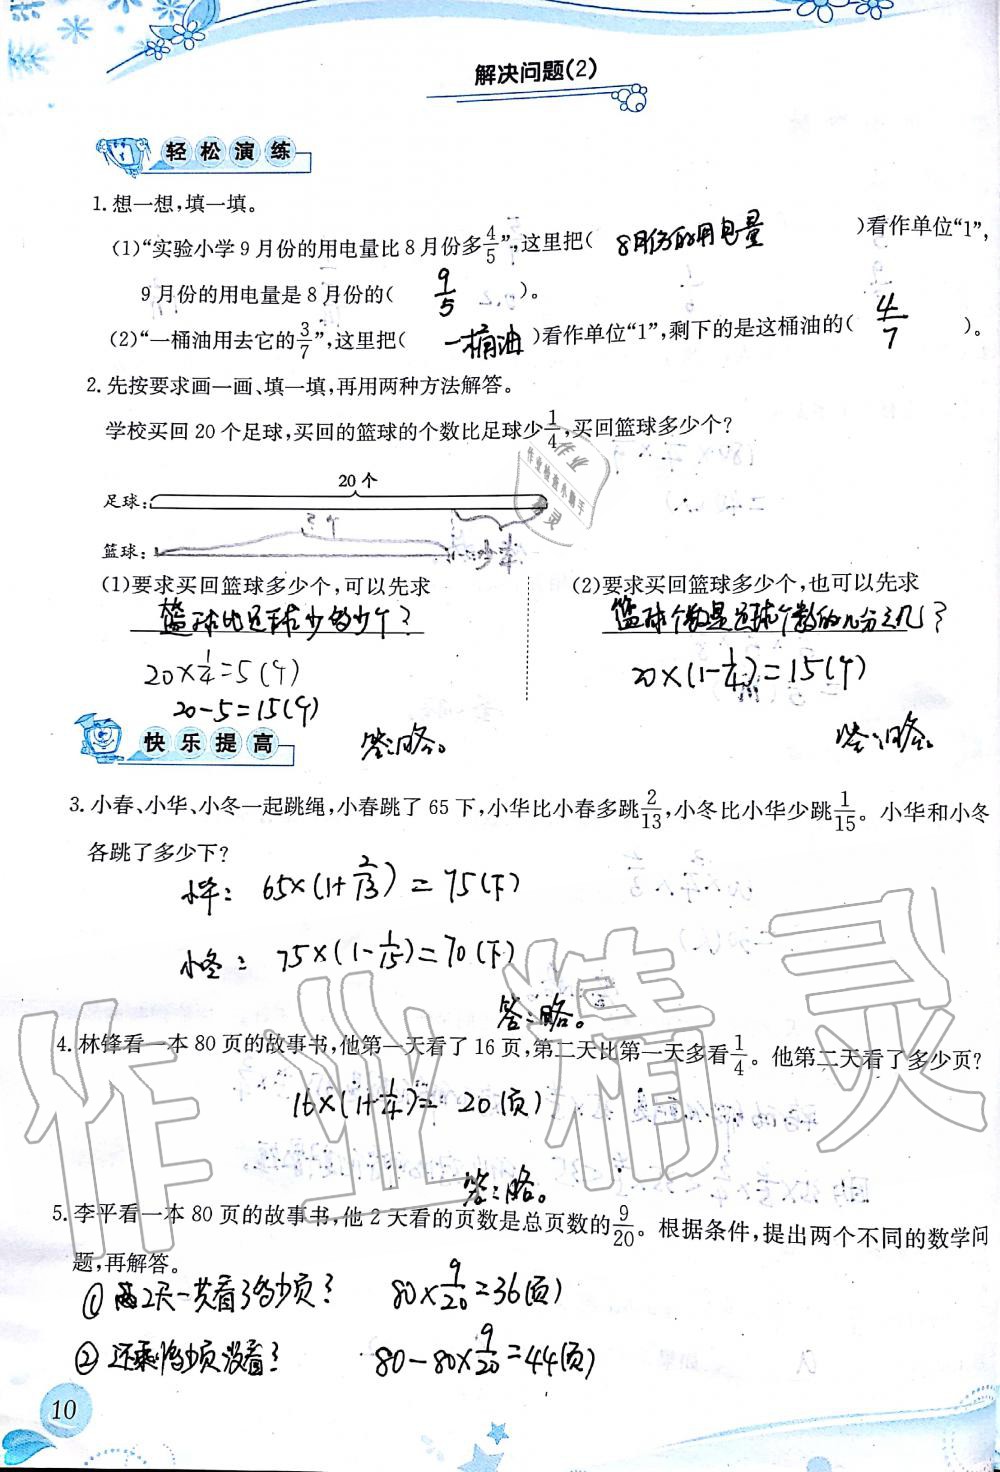 解决问题(2)
轻松演练
1. 想一想,填一填。
(1)“实验小学9月份的用电量比8月份多4/5”,这里把( 8月份的用电量 )看作单位“1”,
9月份的用电量是8月份的( 9/5 )。
(2)“一桶油用去它的3/7”,这里把( 一桶油 )看作单位“1”,剩下的是这桶油的( 4/7 )。
2. 先按要求画一画、填一填,再用两种方法解答。
学校买回20个足球,买回的篮球的个数比足球少1/4,买回篮球多少个?
20个
足球:
篮球:
(1)要求买回篮球多少个,可以先求
篮球比足球少多少个?
20×1/4=5(个)
20-5=15(个)
答:略。
(2)要求买回篮球多少个,也可以先求
篮球个数是足球个数的几分之几?
20×(1-1/4)=15(个)
答:略。
快乐提高
3. 小春、小华、小冬一起跳绳,小春跳了65下,小华比小春多跳2/13,小冬比小华少跳1/15。小华和小冬
各跳了多少下?
小华: 65×(1+2/13)=75(下)
小冬: 75×(1-1/15)=70(下)
答:略。
4. 林锋看一本80页的故事书,他第一天看了16页,第二天比第一天多看1/4。他第二天看了多少页?
16×(1+1/4)=20(页)
答:略。
5. 李平看一本80页的故事书,他2天看的页数是总页数的9/20。根据条件,提出两个不同的数学问
题,再解答。
① 2天一共看了多少页? 80×9/20=36(页)
② 还剩多少页没看? 80-80×9/20=44(页)
10
作业精灵
作业
作业检查小助手
精灵